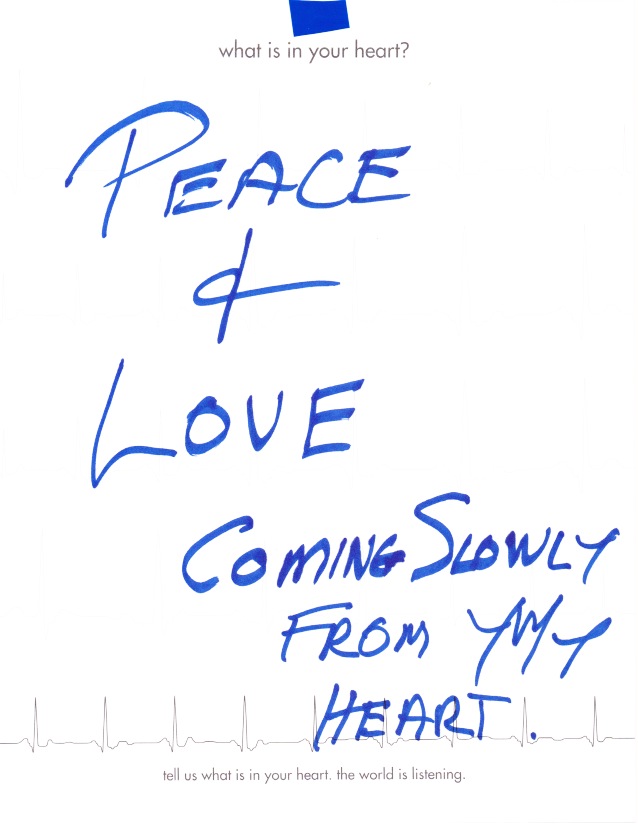 what is in your heart?
PEACE
&
LOVE
COMING SLOWLY
FROM MY
HEART.
tell us what is in your heart. the world is listening.